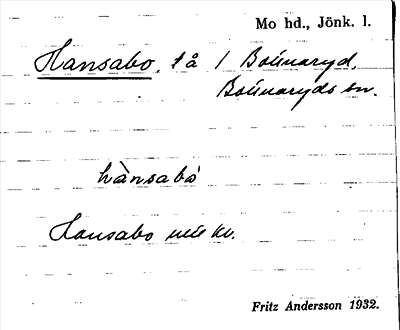 Mo hd., Jönk. l.
Hansabo, t å 1 Boünaryd,
Boünaryds sn.
hànsabó
Hansabo
Fritz Andersson 1932.